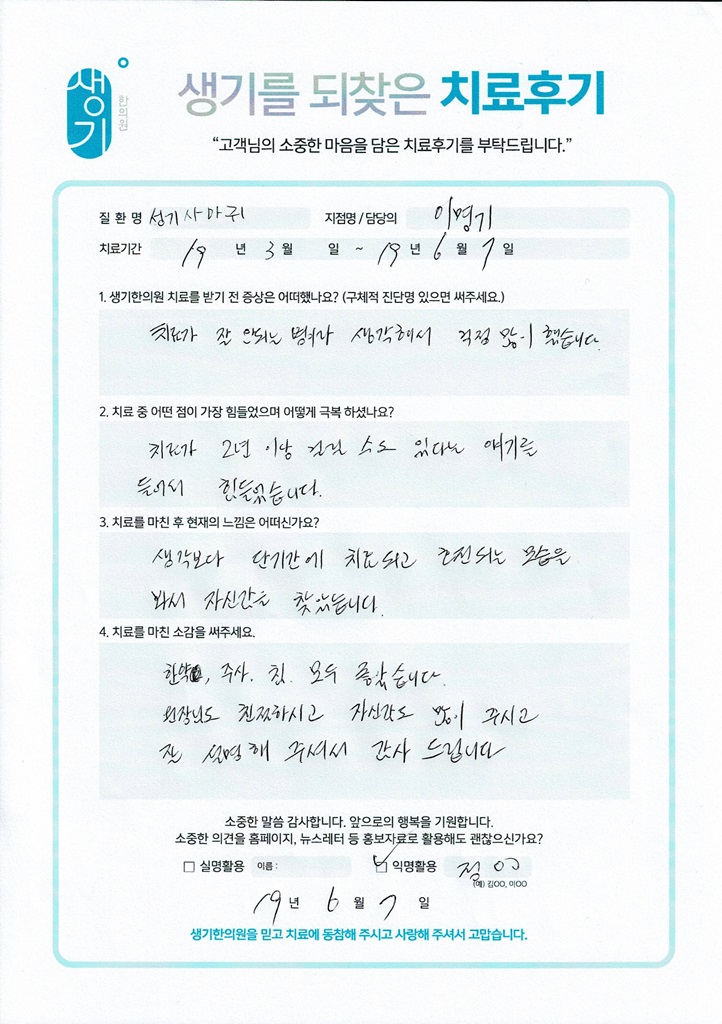 생기
한의원
생기를 되찾은 치료후기
“고객님의 소중한 마음을 담은 치료후기를 부탁드립니다.”
질 환 명 성기사마귀 지점명 / 담당의 이명기
치료기간 19 년 3 월 일 ~ 19 년 6 월 7 일
1. 생기한의원 치료를 받기 전 증상은 어떠했나요? (구체적 진단명 있으면 써주세요.)
치료가 잘 안되는 병이라 생각해서 걱정 많이 했습니다.
2. 치료 중 어떤 점이 가장 힘들었으며 어떻게 극복 하셨나요?
치료가 2년 이상 걸릴 수도 있다는 얘기를
들어서 힘들었습니다.
3. 치료를 마친 후 현재의 느낌은 어떠신가요?
생각보다 단기간에 치료되고 호전되는 모습을
봐서 자신감을 찾았습니다.
4. 치료를 마친 소감을 써주세요.
한약, 주사. 침. 모두 좋았습니다.
원장님도 친절하시고 자신감도 많이 주시고
잘 설명해 주셔서 감사 드립니다
소중한 말씀 감사합니다. 앞으로의 행복을 기원합니다.
소중한 의견을 홈페이지, 뉴스레터 등 홍보자료로 활용해도 괜찮으신가요?
□ 실명활용 이름 : ☑ 익명활용 정OO
(예) 김OO, 이OO
19 년 6 월 7 일
생기한의원을 믿고 치료에 동참해 주시고 사랑해 주셔서 고맙습니다.